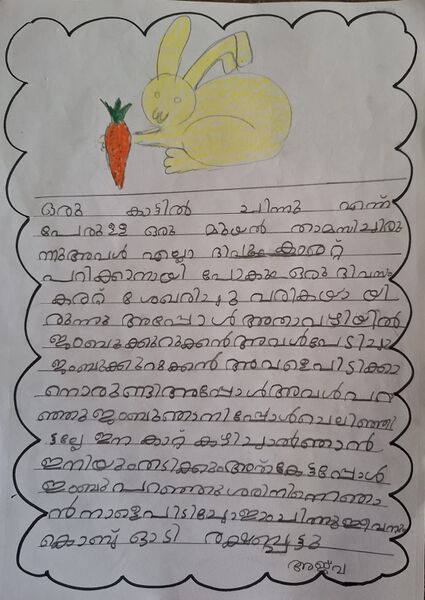 ഒരു കാട്ടിൽ ചിന്നു എന്ന്
പേരുള്ള ഒരു മുയൽ താമസിച്ചിരു
ന്നു അവൾ എല്ലാ ദിവസം കാരറ്റ്
പറിക്കാനായി പോകും ഒരു ദിവസം
കരറ്റ് ശേഖരിച്ചു വരികയാ യി
രുന്നു അപ്പോൾ അതാ വഴിയിൽ
ജംബുക്കുറുക്കൻ അവൾ പേടിച്ചു
ജംബുക്കുറുക്കൻ അവളെ പിടിക്കാ
നൊരുങ്ങി അപ്പോൾ അവൾ പറ
ഞ്ഞു ജംബു ഞാനിപ്പോൾ മെലിഞ്ഞി
ട്ടല്ലേ ഇനി കാറ്റ് കഴിച്ചാൽ ഞാൻ
ഇനിയും തടിക്കും അത് കേട്ടപ്പോൾ
ജംബു പറഞ്ഞു ശരി നിന്നെ ഞാ
ൻ നാളെ പിടിച്ചോളാം ചിന്നു
കൊണ്ട് ഓടി രക്ഷപ്പെട്ടു